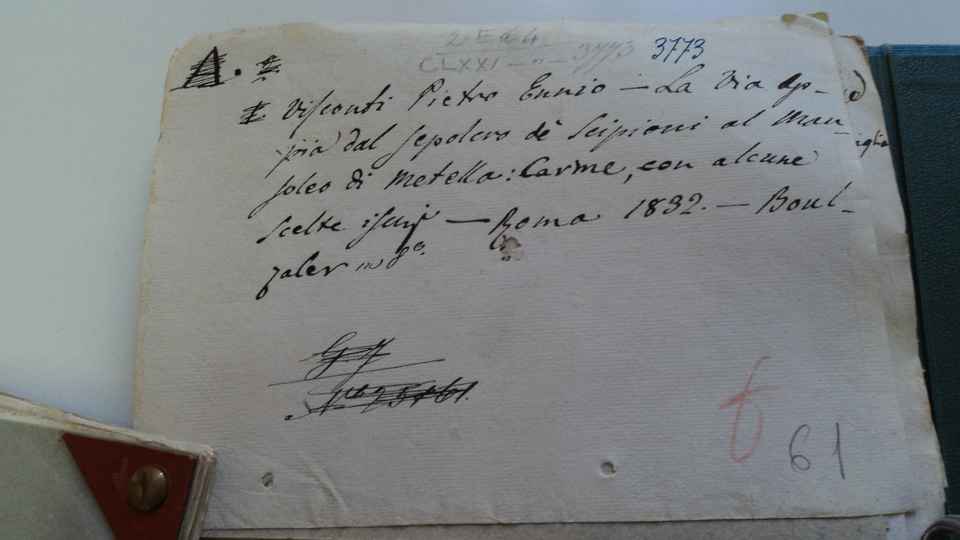 2 E a 4
CLXXI — „ — 3773 3773
A.
Visconti Pietro Ennio — La Via Ap-
pia dal sepolcro de Scipioni al Mau-
soleo di Metella: Carme, con alcune
scelte iscriz — Roma 1832. — Boul-
zaler in 8º.
61